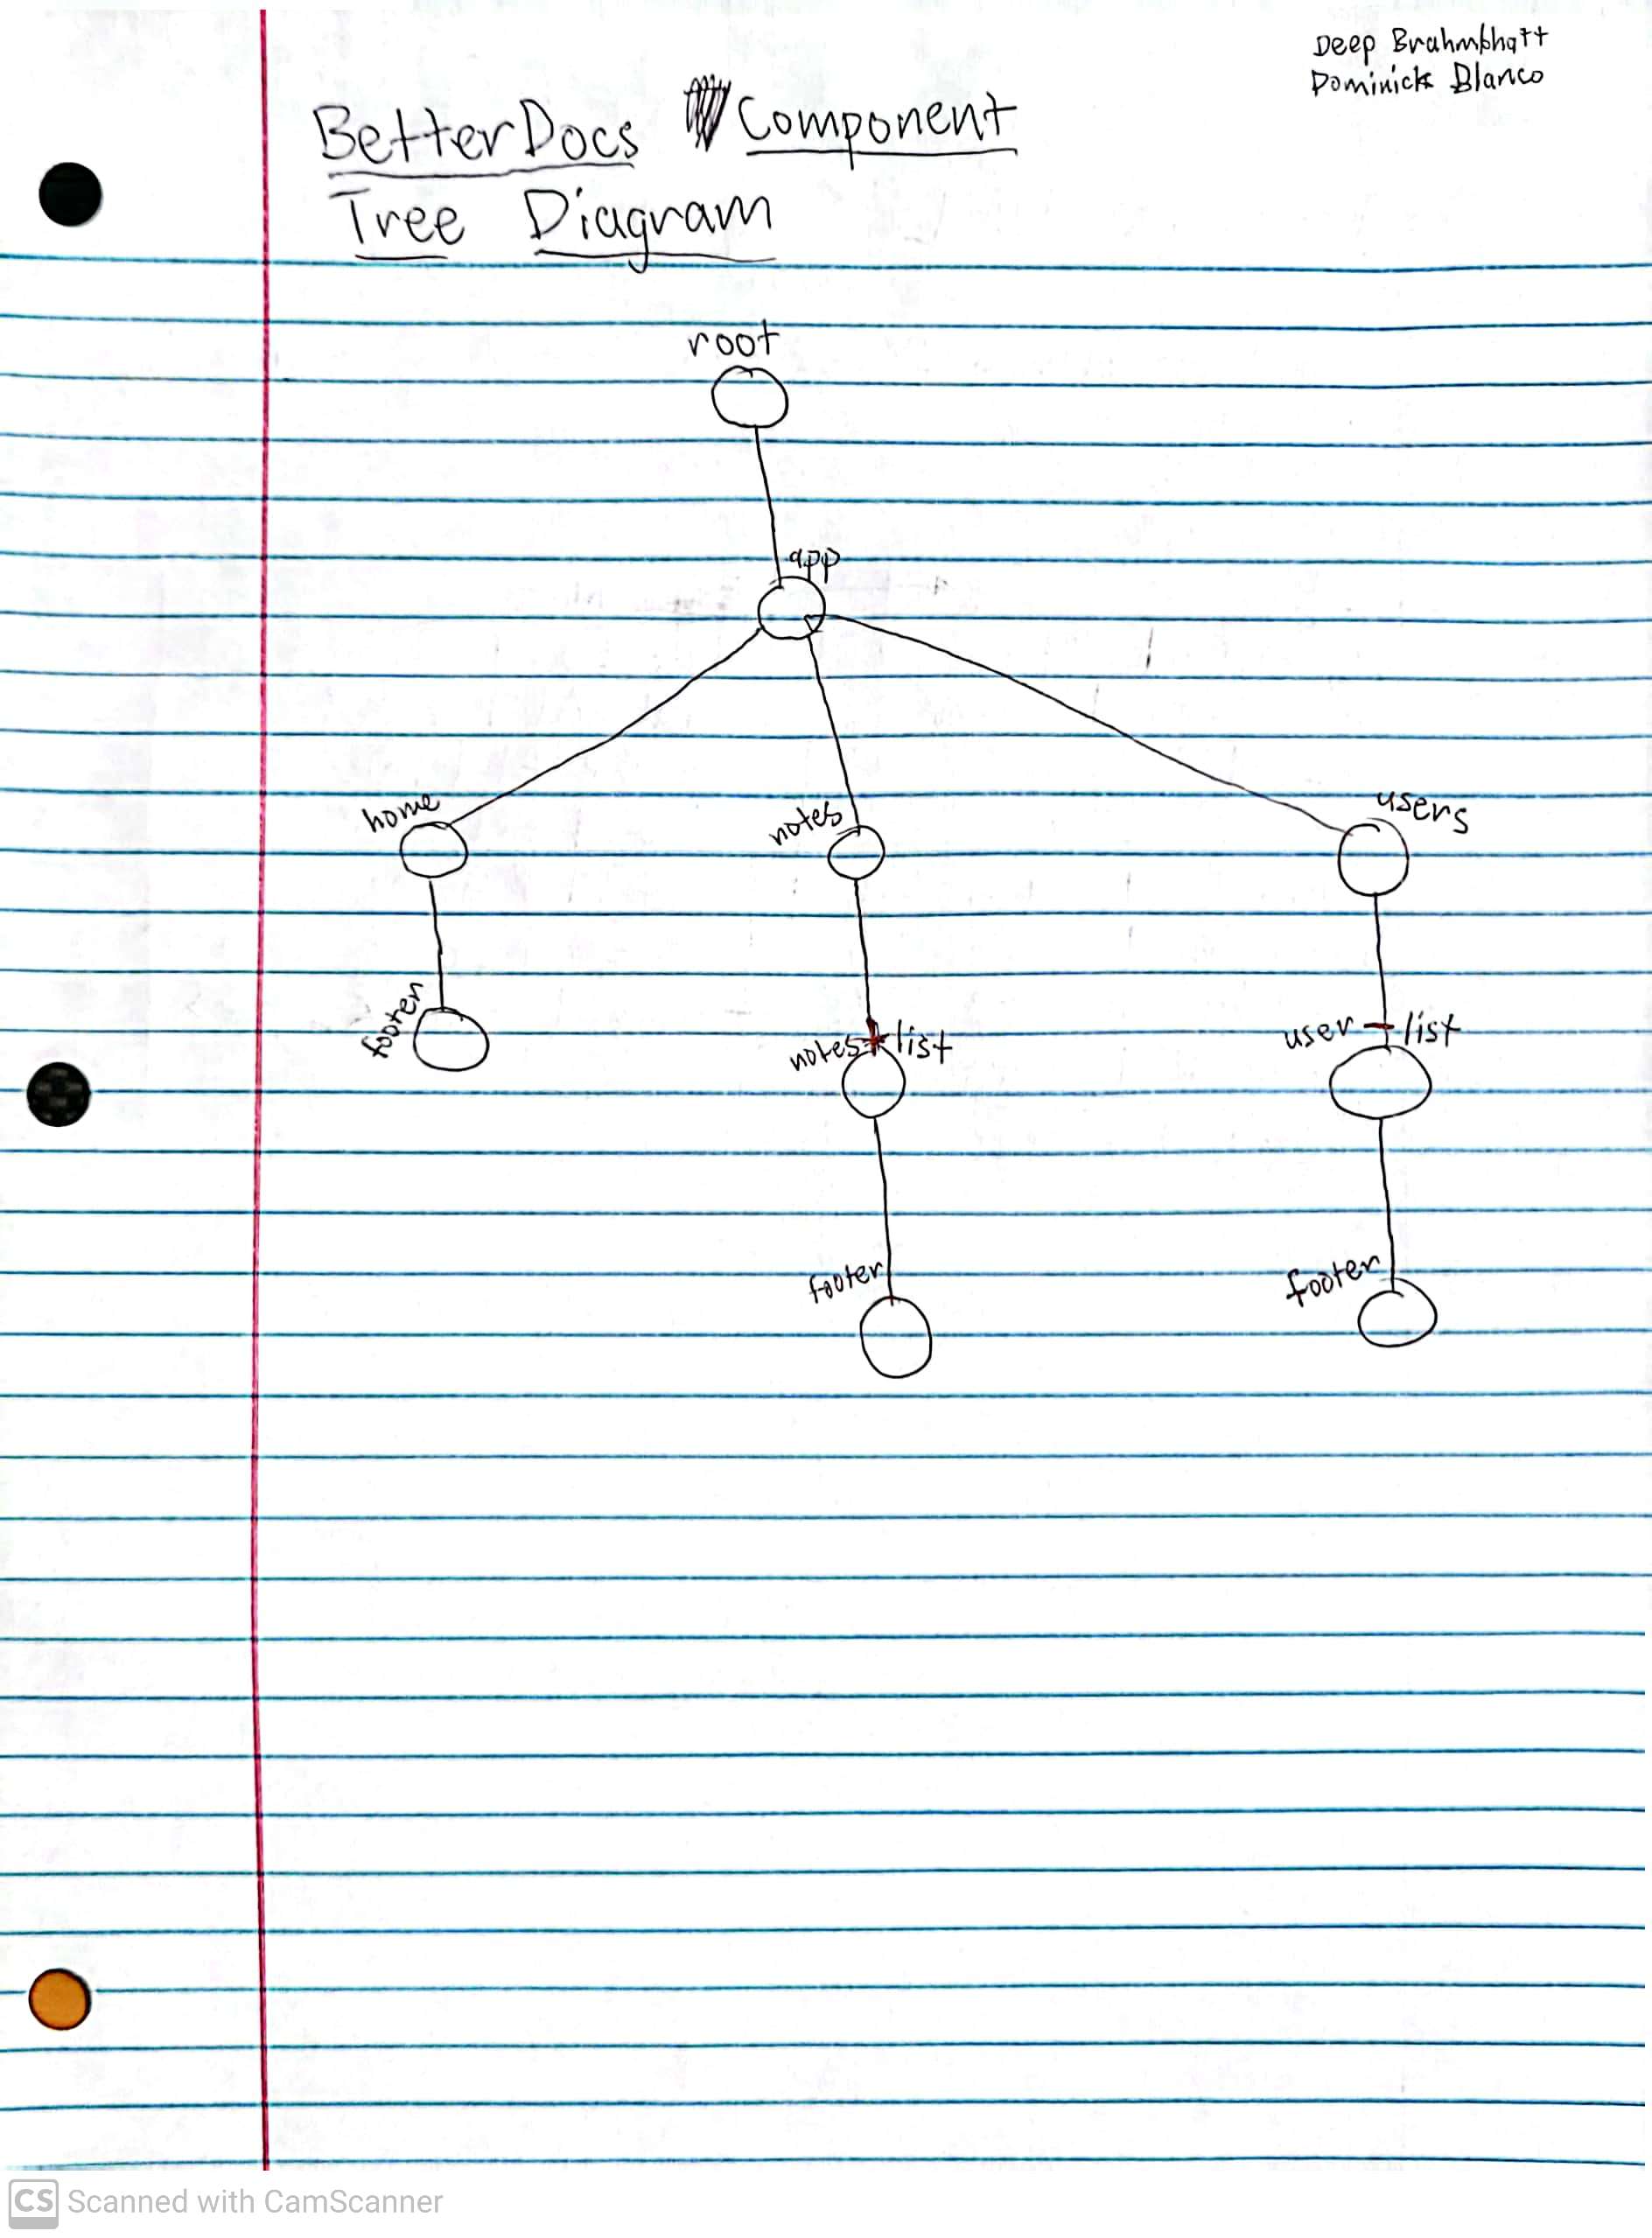 Deep Brahmbhatt
Dominick Blanco
BetterDocs Component
Tree Diagram
root
app
home
notes
users
footer
notes-list
user-list
footer
footer
CS Scanned with CamScanner